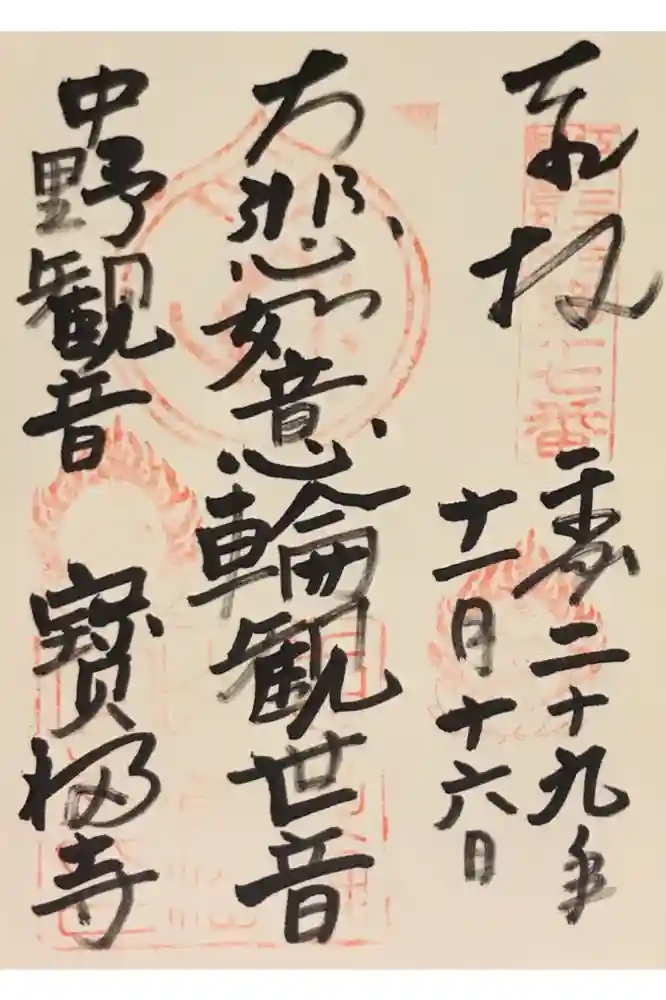 奉拝
七番
平成二十九年
十一月十六日
大悲如意輪観世音
中野観音
寶福寺